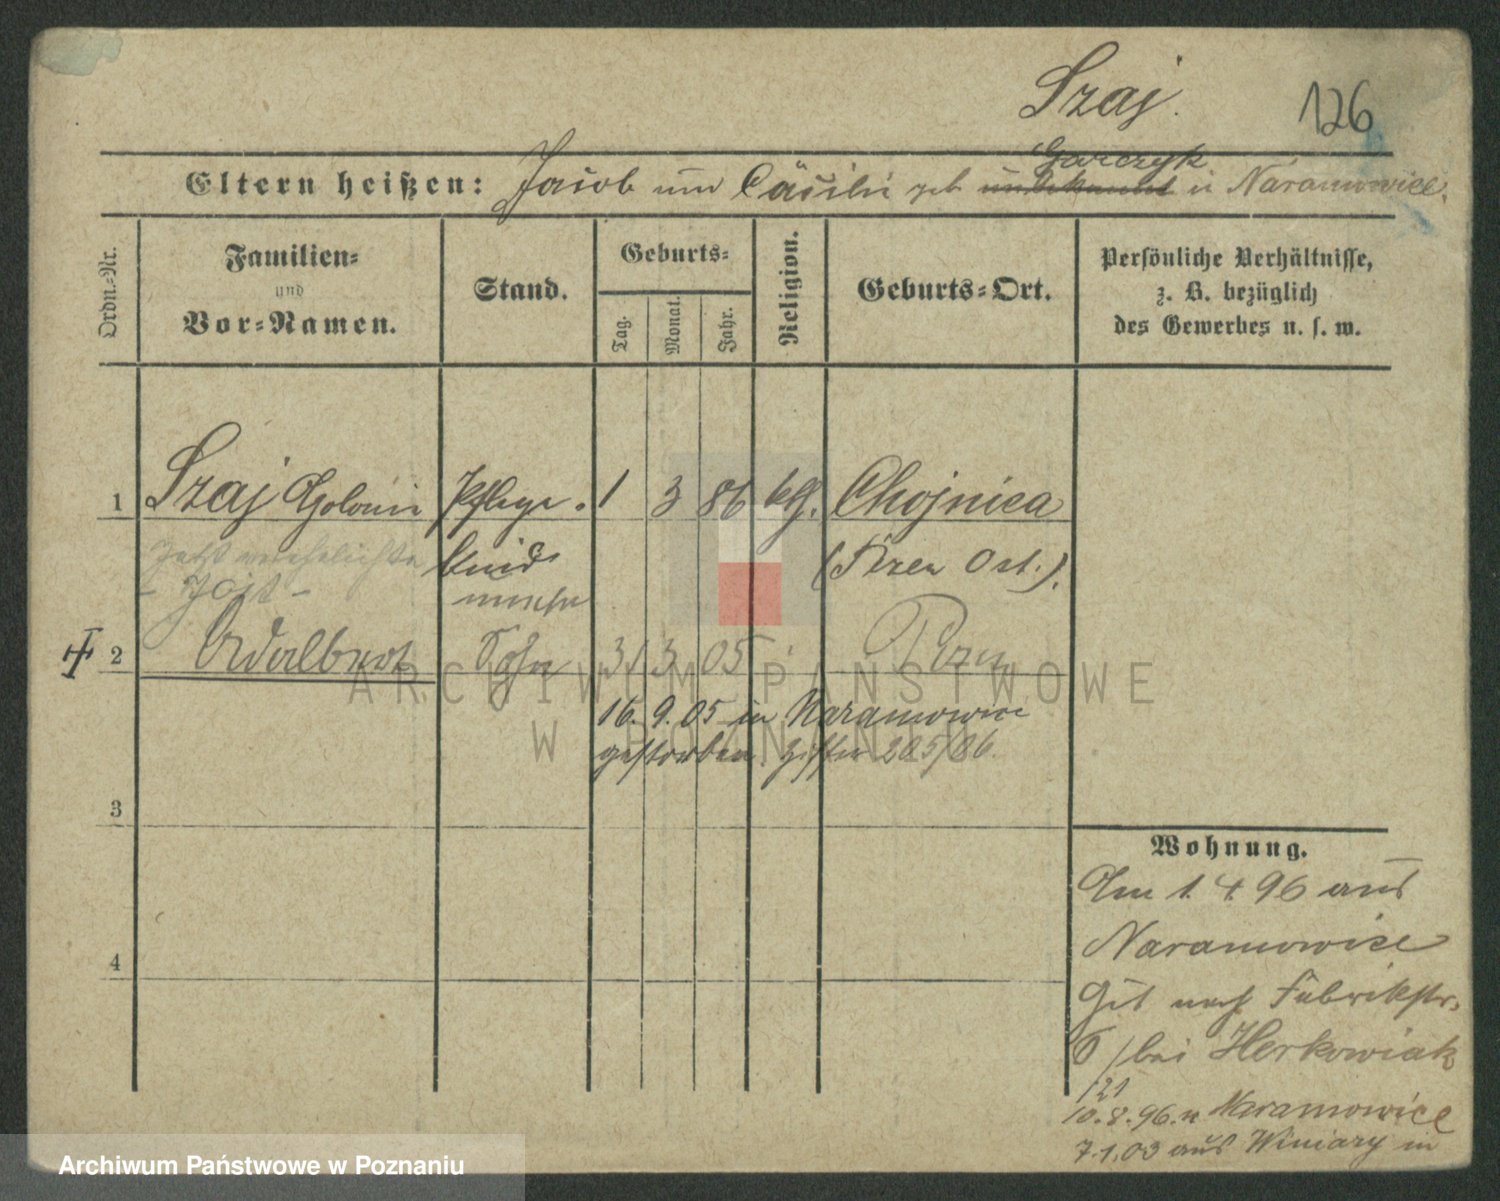 Szaj.
126
Garczyk
Eltern heißen: Jacob und Cäcilie geb. unbekannt in Naramowice.
Ordn.-Nr.
Familien-
und
Vor-Namen.
Stand.
Geburts-
Tag.
Monat.
Jahr.
Religion.
Geburts-Ort.
Persönliche Verhältnisse,
z. B. bezüglich
des Gewerbes u. s. w.
1 Szaj Apolonie Pflege- 1 3 86 kth. Chojnica
jetzt verehelichte kind (Posen Ost.).
2 Adalbert Sohn 31 3 05 Posen
16. 9. 05 in Naramowice
gestorben Ziffer 205/06.
3
4
Wohnung.
Am 1. 4. 96 aus
Naramowice
Gut nach Fabrikstr.
6 / bei Herkowiak
121
10.8.96. n Naramowice
7.1.03 aus Winiary in
ARCHIWUM PAŃSTWOWE
W POZNANIU
Archiwum Państwowe w Poznaniu